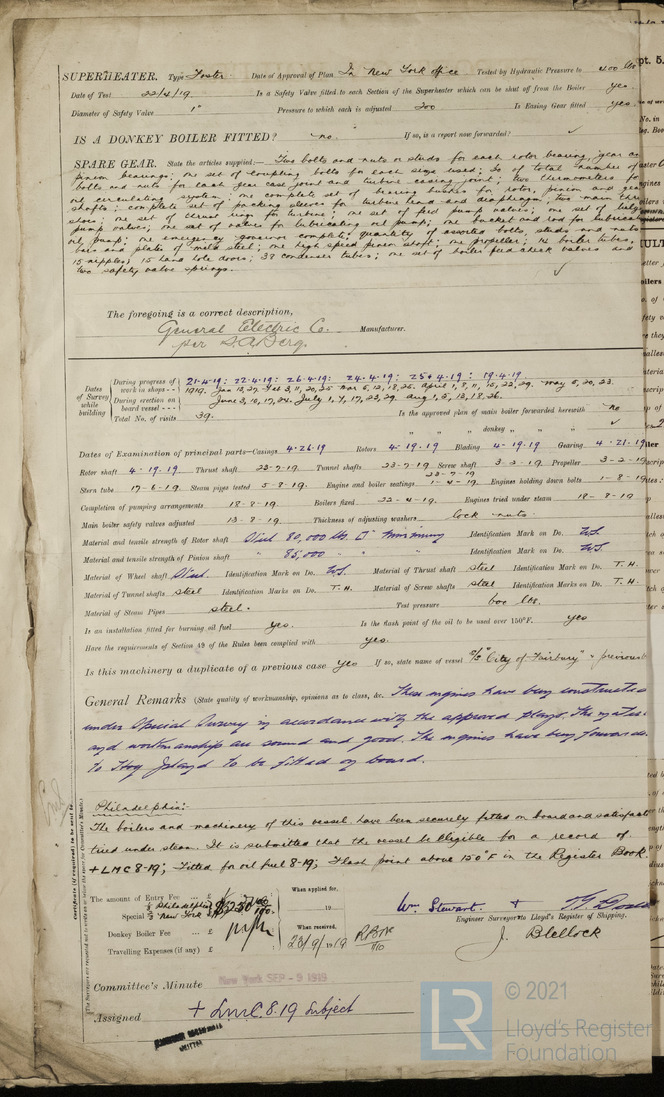 SUPERHEATER. Type Foster Date of Approval of Plan In New York office Tested by Hydraulic Pressure to 400 lbs
Date of Test 22/4/19. Is a Safety Valve fitted to each Section of the Superheater which can be shut off from the Boiler yes.
Diameter of Safety Valve 1" Pressure to which each is adjusted 200 Is Easing Gear fitted yes
IS A DONKEY BOILER FITTED? no. If so, is a report now forwarded? ✓
SPARE GEAR. State the articles supplied:— Two bolts and nuts or studs for each rotor bearing, gear or
pinion bearings; one set of coupling bolts for each size used; of total number of
bolts and nuts for each gear case joint and turbine casing joint; two thermometers for
oil circulating system; one complete set of bearing bushes for rotor, pinion and gear
shafts; complete set of packing sleeves for turbine head and diaphragm; two main thrust
shoes; one set of thrust rings for turbine; one set of feed pump valves; one set of bilge
pump valves; one set of valves for lubricating oil pump; one bucket and rod for lubricating
oil pump; one emergency governor complete; quantity of assorted bolts, studs and nuts
bars and plates of mild steel; one high speed pinion shaft; one propeller; 12 boiler tubes;
15 nipples; 15 hand hole doors; 38 condenser tubes; one set of boiler feed check valves and
two safety valve springs. ✓
The foregoing is a correct description,
General Electric Co. Manufacturer.
per S.A. Berg.
Dates of Survey while building
During progress of work in shops -- 21-4-19: 22-4-19: 26-4-19: 24-4-19: 25-4-19: 19-4-19
1919. Jan 13, 27. Feb 3, 11, 20, 25 Mar 5, 12, 13, 26. April 1, 8, 11, 15, 22, 29. May 6, 20, 23.
During erection on board vessel --- June 3, 10, 17, 24. July 1, 7, 17, 23, 29. Aug 1, 5, 13, 18, 26.
Total No. of visits 39. Is the approved plan of main boiler forwarded herewith no
" " donkey " " " ✓
Dates of Examination of principal parts—Casings 4-26-19 Rotors 4-19-19 Blading 4-19-19 Gearing 4-21-19
Rotor shaft 4-19-19 Thrust shaft 23-7-19 Tunnel shafts 23-7-19 Screw shaft 3-2-19 Propeller 3-2-19
Stern tube 17-6-19 Steam pipes tested 5-8-19 Engine and boiler seatings 1-4-19 Engines holding down bolts 1-8-19
Completion of pumping arrangements 18-8-19 Boilers fixed 22-4-19 Engines tried under steam 18-8-19
Main boiler safety valves adjusted 13-8-19 Thickness of adjusting washers lock-nuts.
Material and tensile strength of Rotor shaft Steel 80,000 lbs. minimum Identification Mark on Do. W.S.
Material and tensile strength of Pinion shaft " 85,000 " " Identification Mark on Do. W.S.
Material of Wheel shaft Steel Identification Mark on Do. W.S. Material of Thrust shaft steel Identification Mark on Do. T.H.
Material of Tunnel shafts steel Identification Marks on Do. T.H. Material of Screw shafts steel Identification Marks on Do. T.H.
Material of Steam Pipes steel. Test pressure 600 lbs.
Is an installation fitted for burning oil fuel yes. Is the flash point of the oil to be used over 150°F. yes
Have the requirements of Section 49 of the Rules been complied with yes.
Is this machinery a duplicate of a previous case yes If so, state name of vessel "City of Fairbury" & previous
General Remarks (State quality of workmanship, opinions as to class, &c. These engines have been constructed
under Special Survey in accordance with the approved plans. The material
and workmanship are sound and good. The engines have been forwarded
to Hog Island to be fitted on board.
Philadelphia:-
The boilers and machinery of this vessel have been securely fitted on board and satisfact
tried under steam. It is submitted that the vessel be eligible for a record of
+LMC 8-19; Fitted for oil fuel 8-19; Flash point above 150°F in the Register Book.
The amount of Entry Fee ... £
Special ½ Philadelphia ½ New York
Donkey Boiler Fee ... £
Travelling Expenses (if any) £
When applied for,
19
When received,
23/9/1919
Wm Stewart. +
Engineer Surveyor to Lloyd's Register of Shipping.
J. Blellock
Committee's Minute New York SEP -9 1919
Assigned + LMC 8.19 Subject
LR © 2021
Lloyd's Register
Foundation